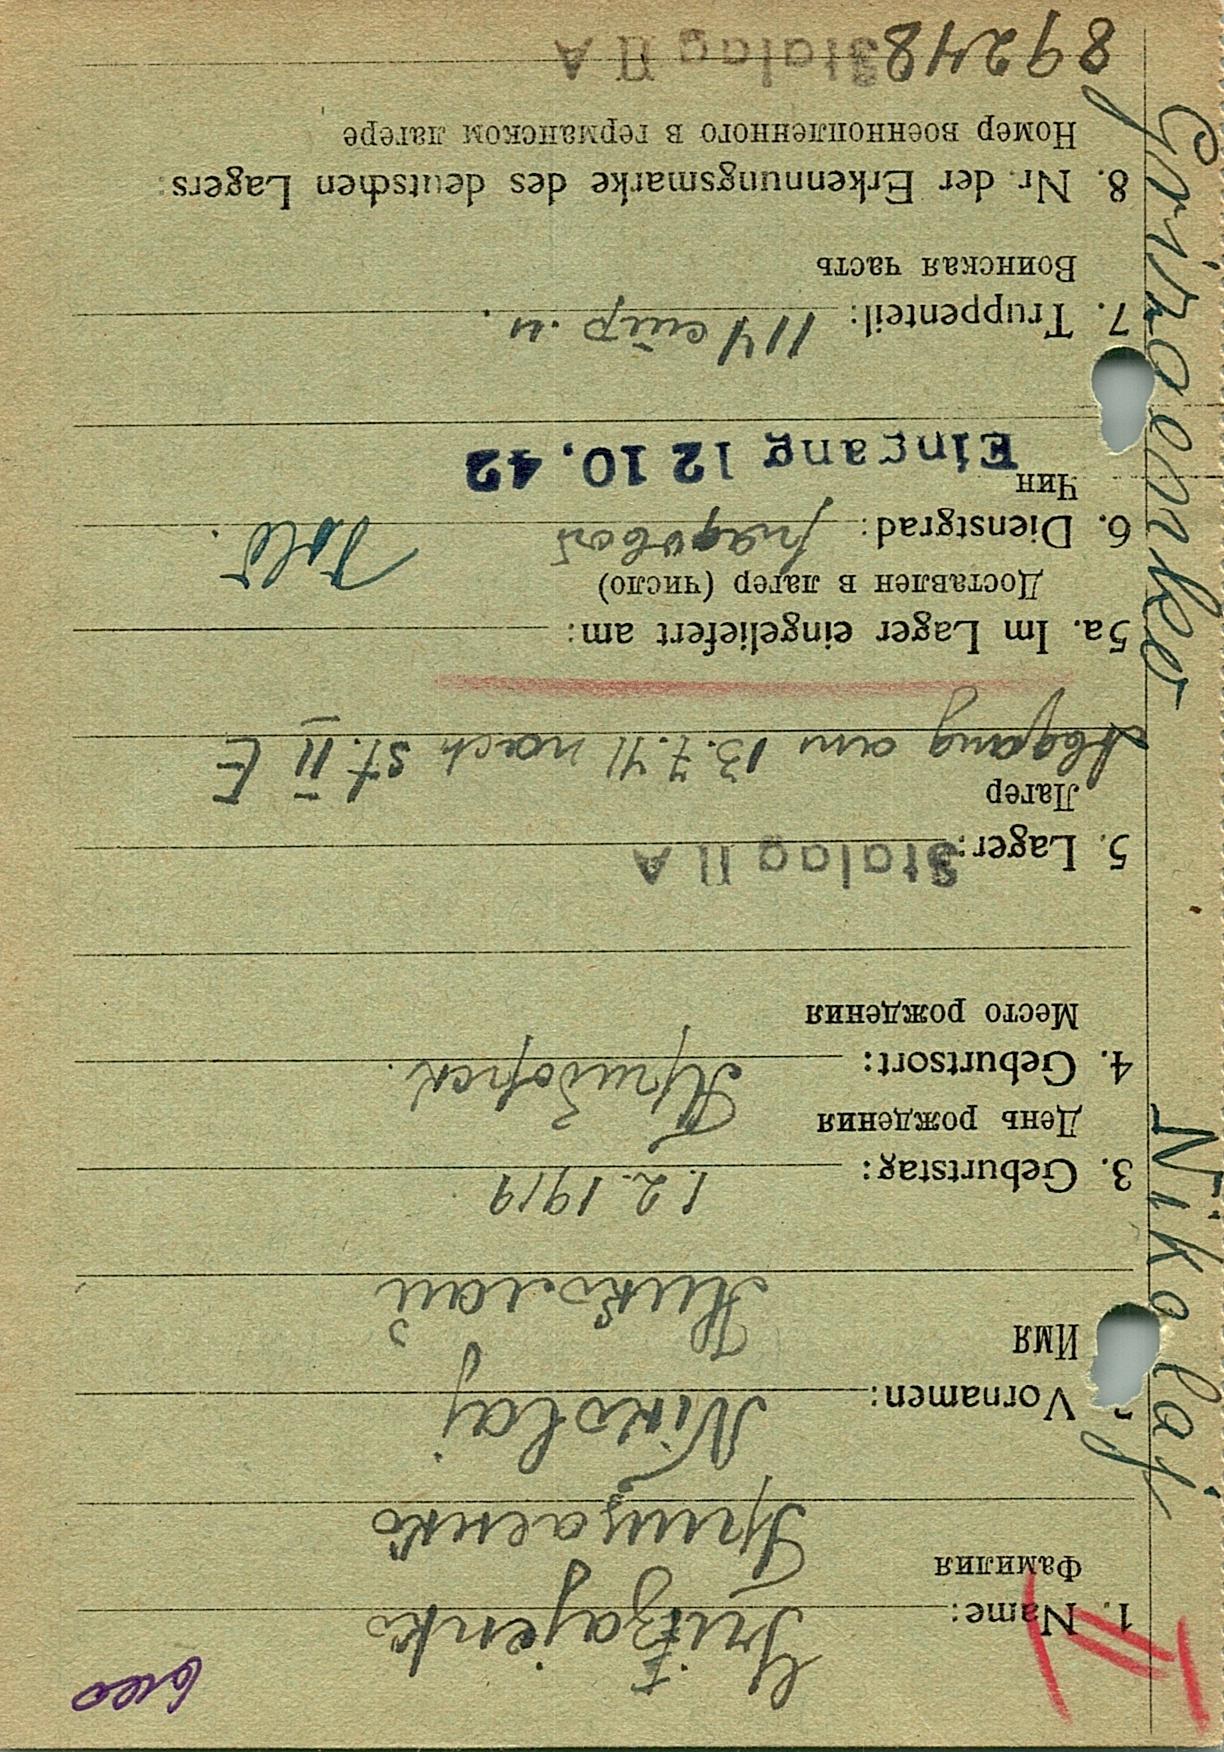 1. Name: Gritzajenko
Фамилия Грицаенко
Vornamen: Nikolaj
Имя Николай
3. Geburtstag: 1.2.1919
День рождения
4. Geburtsort:
Место рождения
5. Lager: Stalag II A
Лагер
Abgang am 13.7.41 nach St. II E
5a. Im Lager eingeliefert am:
Доставлен в лагер (число)
6. Dienstgrad: рядовой
Чин
Eingang 12 10. 42
7. Truppenteil: 114
Воинская часть
8. Nr. der Erkennungsmarke des deutschen Lagers:
Номер военнопленного в германском лагере
89248 Stalag II A
Nikolaj